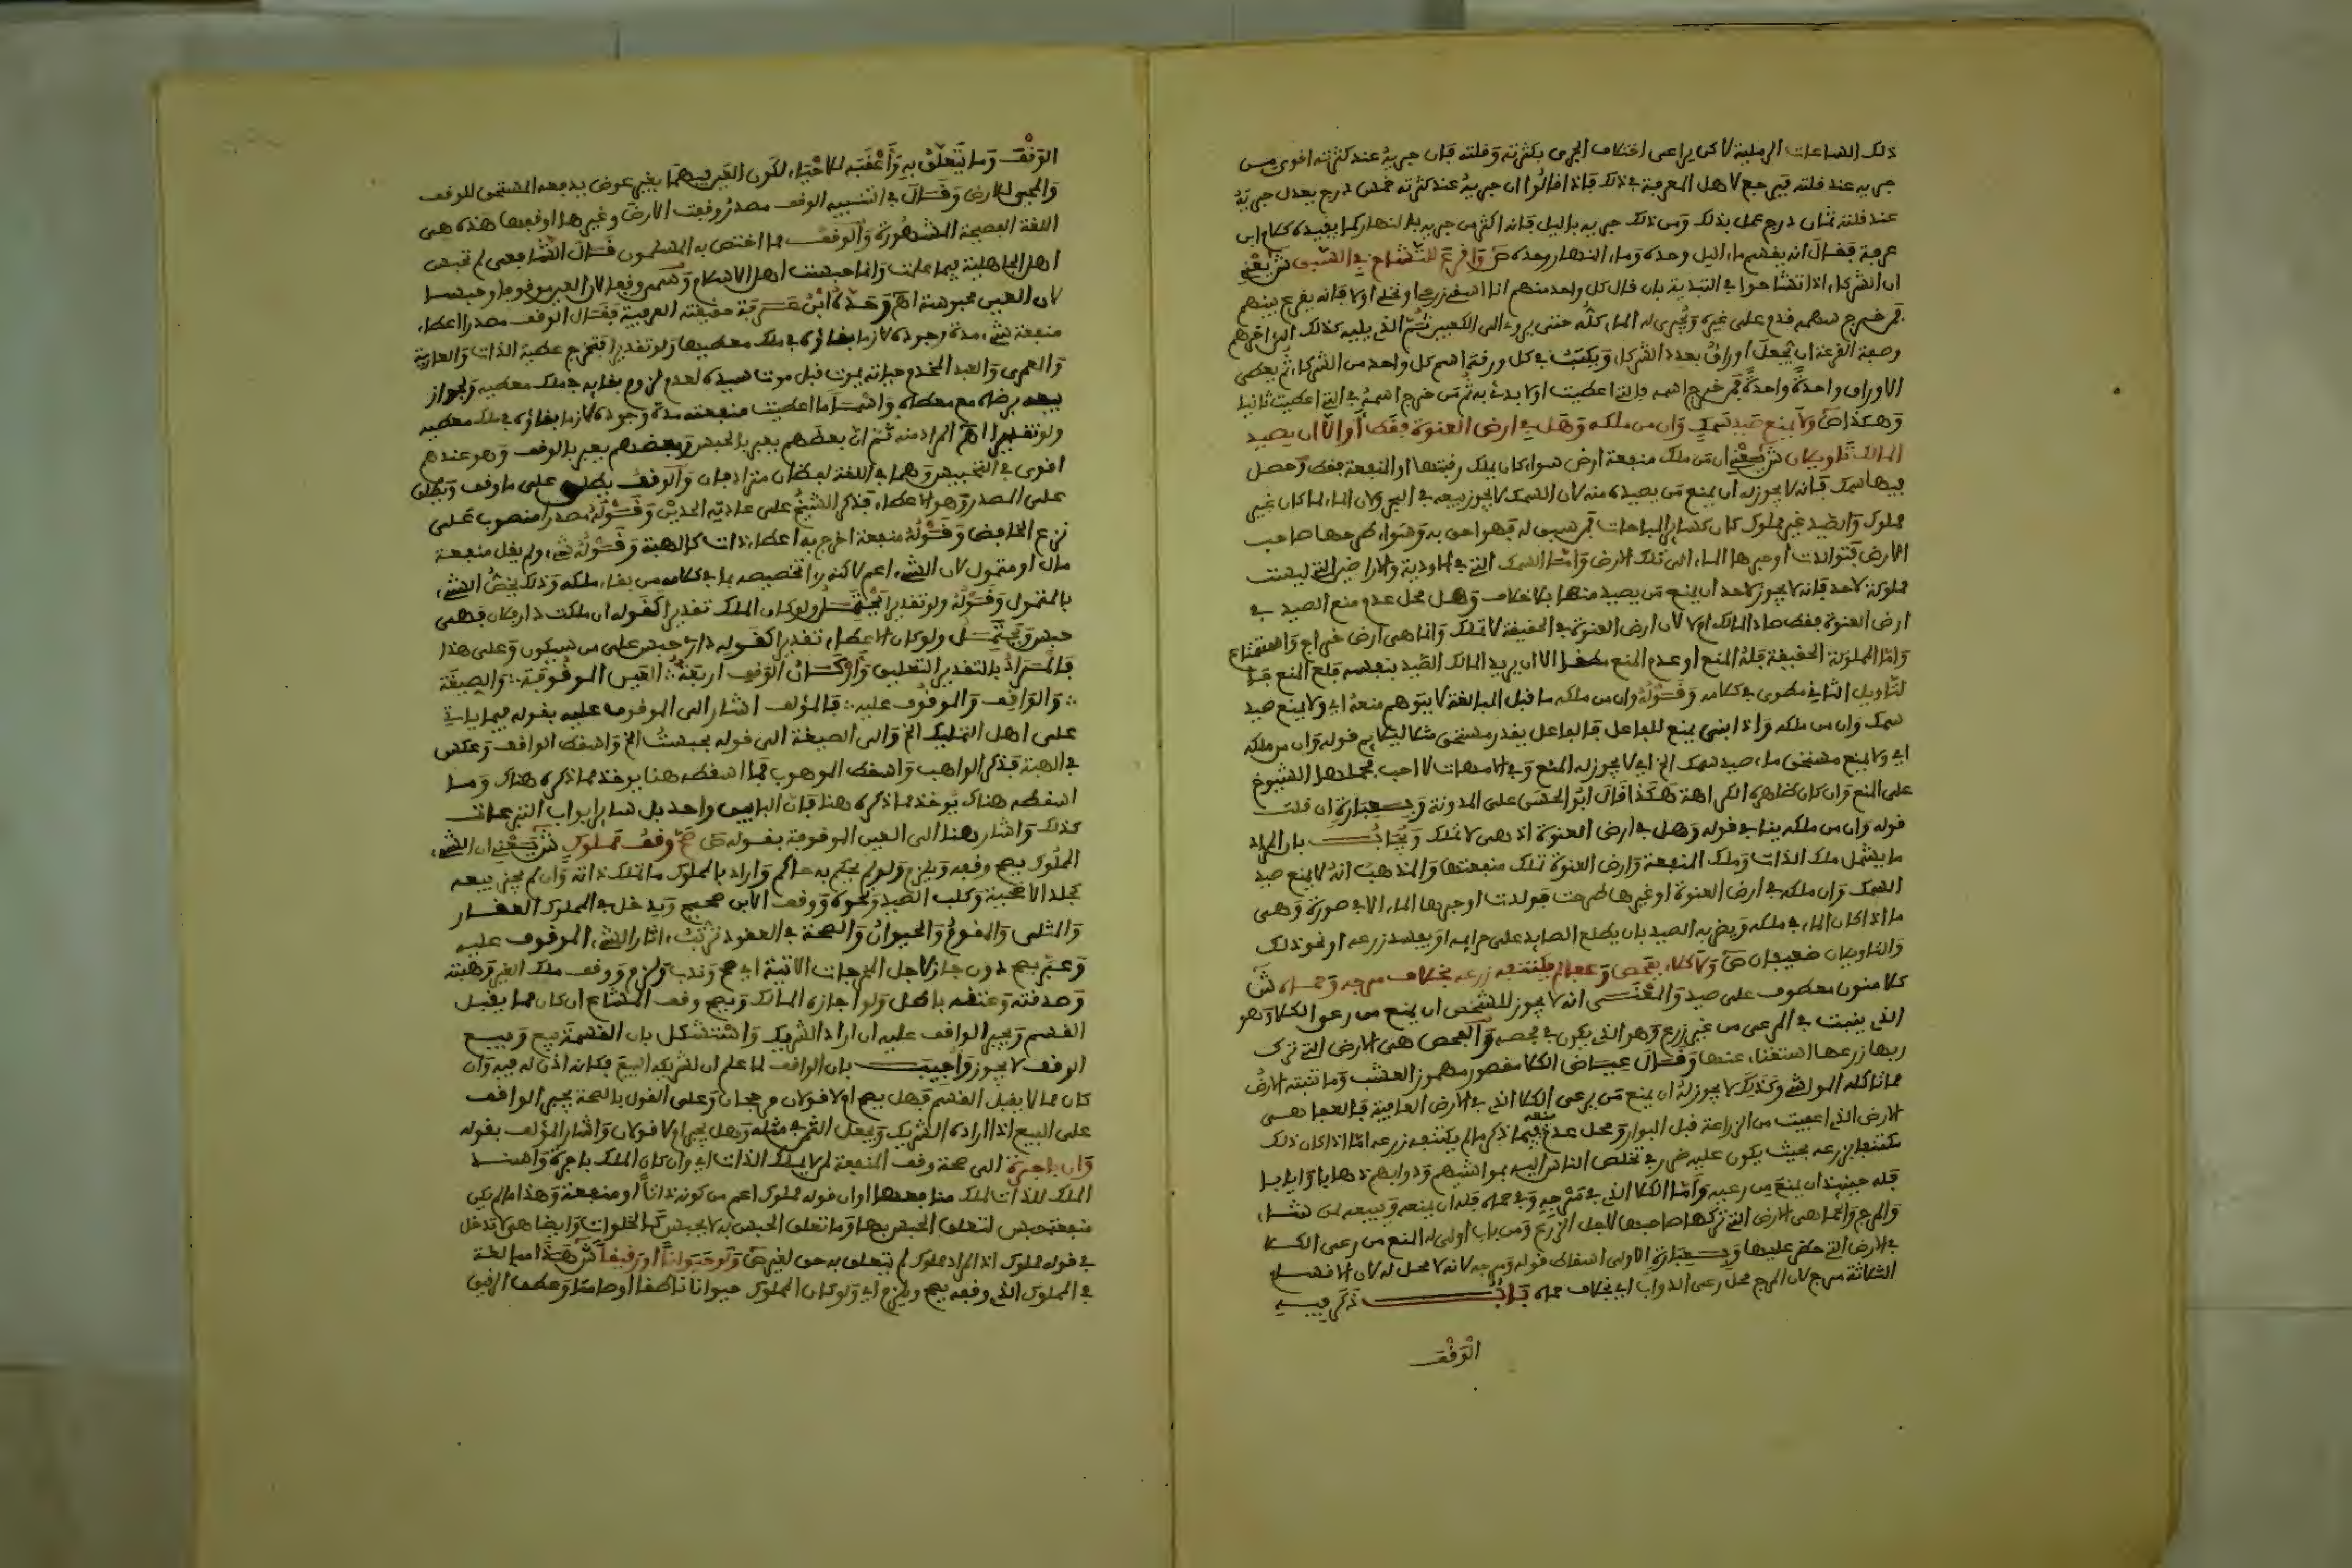 ذلك الساعات الرملية لاكن يراعى اختلاف الجرى بكثرته وقلته فان جريه عند كثرته اقوى من
جريه عند قلته فيرجع لاهل المعرفة في ذلك فاذا قالوا ان جريه عند كثرته خمس درج يعدل جريه
عند قلته ثمان درج عمل بذلك ومن ذلك جريه بالليل فانه اكثر من جريه بالنهار كما يفيده كلام ابن
عرفة فقال انه يقسم ماء الليل وحده وماء النهار وحده ص واقرع للتشاح في السبق ش يعني
ان الشركاء اذا تشاحوا في التبدية بان قال كل واحد منهم انا اسقي زرعي او نخلي اولا فانه يقرع بينهم
فمن خرج سهمه قدم على غيره ويجرى له الماء كله حتى يروى الى الكعبين ثم الذي يليه كذلك الى اخرهم
وصفة القرعة ان يجعل اوراق بعدد الشركاء ويكتب في كل ورقة اسم كل واحد من الشركاء ثم يعطى
الاوراق واحدة واحدة فمن خرج اسمه في التي اعطيت اولا بدئ به ثم من خرج اسمه في التي اعطيت ثانيا
وهكذا ص ولا يمنع صيد سمك وان من ملكه وهل في ارض العنوة فقط او الا ان يصيد
المالك تاويلان ش يعني ان من ملك منفعة ارض سواء كان يملك رقبتها او المنفعة فقط وحصل
فيها سمك فانه لا يجوز له ان يمنع من يصيده منه لان السمك لا يجوز بيعه في البحر ولان الماء لما كان غير
مملوك والصيد غير مملوك كان كسائر المباحات فمن سبق له فهو احق به وسواء طرحها صاحب
الارض فتوالدت او جرها الماء الى تلك الارض واما السمك التي في الاودية والاراضي التي ليست
مملوكة لاحد فانه لا يجوز لاحد ان يمنع من يصيد منها بلا خلاف وهل محل عدم منع الصيد في
ارض العنوة فقط صاد المالك ام لا لان ارض العنوة في الحقيقة لا تملك وانما هي ارض خراج والاستمتاع
واما المملوكة الحقيقة فله المنع او عدم المنع مطلقا الا ان يريد المالك الصيد بنفسه فله المنع
لتاويل الثاني مطوى في كلامه وقوله وان من ملكه ما قبل المبالغة لا يتوهم منعه اي ولا يمنع صيد
سمك وان من ملكه واذا بني يمنع للفاعل فالفاعل يقدر مستحق قوله وان من ملكه
اي ولا يمنع مستحق ماء صيد سمك الخ اي لا يجوز له المنع وفي الامهات لا احب فحملها الشيوخ
على المنع وان كان ظاهره الكراهة هكذا قال ابو الحسن على المدونة وبعبارة ان قلت
قوله وان من ملكه ينافي قوله وهل في ارض العنوة اذ هي لا تملك ويجاب بان المراد
ما يشمل ملك الذات وملك المنفعة وارض العنوة تملك منفعتها والمذهب انه لا يمنع صيد
السمك وان ملكه في ارض العنوة او غيرها طرحت فولدت او جرها الماء الا في صورة وهي
ما اذا كان الماء في ملكه ويضر به الصيد بان يطلع الصايد على حريمه او يفسد زرعه او نحو ذلك
والتاويلان ضعيفان ص ولا كلاء بفحص وعفاء لم يكتنفه زرعه بخلاف مرجه وحماه ش
كلا منون معطوف على صيد والمعنى انه لا يجوز للشخص ان يمنع من رعى الكلا وهو
الذي ينبت في المرعى من غير زرع وهو الذي يكون في فحصه والفحص هي الارض التي ترك
ربها زرعها استغناء عنها وقال عياض الكلا مقصور مهموز العشب وما تنبته الارض
مما تاكله المواشي وكذلك لا يجوز له ان يمنع من يرعى الكلا الذي في الارض العافية فالعفا هي
الارض التي اعفيت من الزراعة قبل البوار ومحل عدم منعه فيما ذكر ما لم يكتنفه زرعه اما اذا كان ذلك
مكتنفا بزرعه بحيث يكون عليه ضرر في تخلص الناس اليه بمواشيهم ودوابهم ذهابا وايابا
فله حينئذ ان يمنع من رعيه واما الكلا الذي في مرجه وفي حماه فله ان يمنعه ويبيعه لمن شاء
والمرج والحما هي الارض التي تركها صاحبها لاجل الزرع ومن باب اولى له المنع من رعى الكلا
في الارض التي حظر عليها وبعبارة الاولى اسقاط قوله ومرجه لانه لا محل له لان الاقسام
الثلاثة مرج لان المرج محل رعى الدواب اي بخلاف حماه باب ذكر فيه
الوقف
الوقف وما يتعلق به واعقبه للاحياء لكون الغير فيهما بغير عوض يدفعه المستحق للوقف
والمحيى للارض وقال في التنبيه الوقف مصدر وقفت الارض وغيرها اوقفها هذه هي
اللغة الفصيحة المشهورة والوقف مما اختص به المسلمون قال الشافعي لم تحبس
اهل الجاهلية فيما علمت وانما حبست اهل الاسلام وسمى وقفا لان العين موقوفة وحبسا
لان العين محبوسة اهـ وحده ابن عرفة حقيقته العرفية فقال الوقف مصدرا اعطاء
منفعة شيء مدة وجوده لازما بقاؤه في ملك معطيها ولو تقديرا فتخرج عطية الذات والعارية
والعمرى والعبد المخدم حياته يموت قبل موت سيده لعدم لزوم بقايه في ملك معطيه ويجواز
بيعه برضاه مع معطاه واسما ما اعطيت منفعته مدة وجوده لازما بقاؤه في ملك معطيه
ولو تقديرا اهـ المراد منه ثم ان بعضهم يعبر بالحبس وبعضهم يعبر بالوقف وهو عندهم
اقوى في التحبيس وهما في اللغة لفظان مترادفان والوقف يطلق على ما وقف ويطلق
على المصدر وهو الاعطاء فذكر الشيخ على عادته الحدين وقوله مصدرا منصوب على
نزع الخافض وقوله منفعة اخرج به اعطاء ذات كالهبة وقوله شيء ولم يقل منفعة
مال او متمول لان الشيء اعم لاكنه تخصيصه بما في كلامه من بقاء ملكه وذلك يخص الشيء
بالمتمول وقوله ولو تقديرا يحتمل ولو كان الملك تقديرا كقوله ان ملكت دار فلان فهي
حبس ويحتمل ولو كان الاعطاء تقديرا كقوله داري حبس على من سيكون وعلى هذا
فالمراد بالتقدير التعليق واركان الوقف اربعة العين الموقوفة والصيغة
والواقف والموقوف عليه فالمؤلف اشار الى الموقوف عليه بقوله فيما ياتي
على اهل التمليك الخ والى الصيغة الى قوله بحبست الخ واسقط الواقف وعكس
في الهبة فذكر الواهب واسقط الموهوب فما اسقطه هنا يوخذ مما ذكره هناك وما
اسقطه هناك يوخذ مما ذكره هنا فان البابين واحد بل ساير ابواب التبرعات
كذلك واشار هنا الى العين الموقوفة بقوله ص صح وقف مملوك ش يعني ان الشيء
المملوك يصح وقفه ويلزم ولو لم يحكم به حاكم واراد بالمملوك ما تملك ذاته وان لم يجز بيعه
كجلد الاضحية وكلب الصيد ونحوه ووقف الابق صحيح ويدخل في المملوك العقار
والمثلى والمقوم والحيوان والصحة في العقود ترتب اثار الشيء الموقوف عليه
وعبر بصح دون جاز لاجل المخرجات الاتية اي صح وندب ولزم ووقف ملك الغير وهبته
وصدقته وعتقه باطل ولو اجازه المالك ويصح وقف المشاع ان كان مما يقبل
القسم ويجبر الواقف عليه ان اراد الشريك واستشكل بان القسمة بيع وبيع
الوقف لا يجوز واجيب بان الواقف لما علم ان لشريكه البيع فكانه اذن له فيه وان
كان مما لا يقبل القسم فهل يصح او لا قولان مرجحان وعلى القول بالصحة يجبر الواقف
على البيع اذا اراده الشريك ويجعل الثمن في مثله وهل يجبر او لا قولان واشار المؤلف بقوله
وان باجرة الى صحة وقف المنفعة لم لا يملك الذات اي وان كان الملك باجرة واسند
الملك للذات لملك منافعها او ان قوله مملوك اعم من كونه ذاتا او منفعة وهذا ما لم يكن
منفعة حبس لتعلق الحبس بها وما تعلق الحبس به لا يحبس كالخلوات وايضا هي لا تدخل
في قوله مملوك اذ المراد مملوك لم يتعلق به حق لغير ص ولو حيوانا او رقيقا ش هذا مبالغة
في المملوك الذي وقفه يصح ويلزم اي ولو كان المملوك حيوانا ناطقا او صامتا وعطف الرقيق